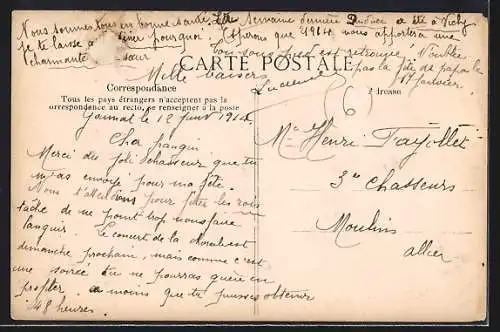 Nous sommes tous en bonne santé. La semaine dernière Ludovic a été à Vichy
je te laisse à penser pourquoi. Espérons que 1914 nous apportera une
charmante sœur
Ton sous pied est retrouvé. N'oublies
pas la fête de papa le
17 janvier.
Mille baisers
Lucienne
CARTE POSTALE
Correspondance
Tous les pays étrangers n'acceptent pas la
correspondance au recto, se renseigner à la poste
Adresse
6
Gannat le 12 janv 1914.
Cher frangin
Merci du joli chasseur que tu
m'as envoyé pour ma fête
Nous t'attendons pour fêter les rois
tâche de ne point trop nous faire
languir. Le concert de la chorale est
dimanche prochain, mais comme c'est
une soirée tu ne pourras guère en
profiter. à moins que tu puisses obtenir
48 heures.
Mr Henri Fayollet
3e Chasseurs
Moulins
allier